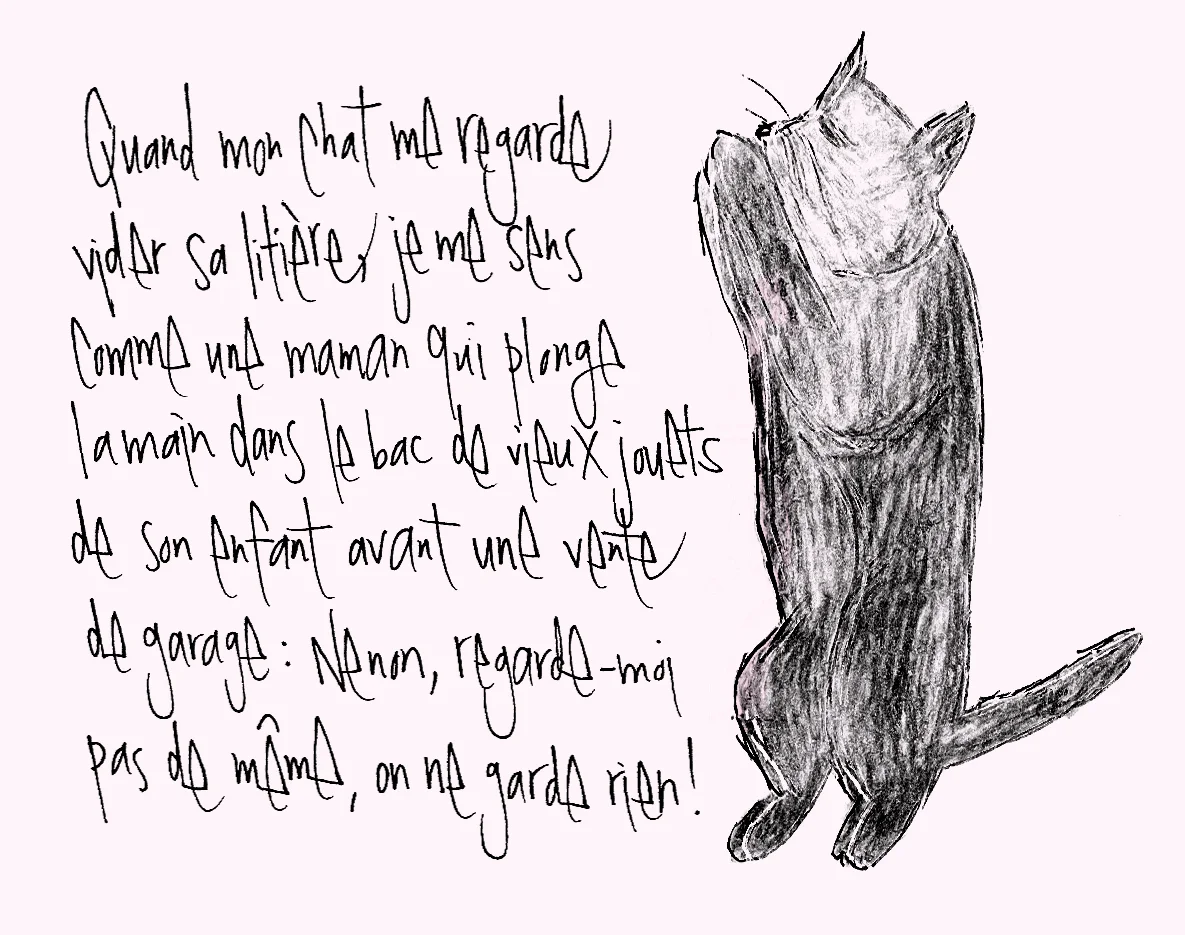 Quand mon chat me regarde
vider sa litière, je me sens
comme une maman qui plonge
la main dans le bac de vieux jouets
de son enfant avant une vente
de garage : Nenon, regarde-moi
pas de même, on ne garde rien !